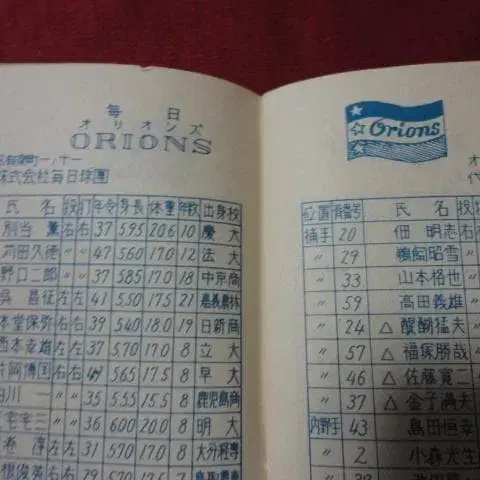 毎日
オリオンズ
ORIONS
株式会社毎日球團
氏名 投 打 年令 身長 体重 年数 出身校
別当薫 右 右 37 595 20.6 10 慶大
苅田久徳 〃 〃 47 560 17.0 12 法大
野口二郎 〃 〃 37 585 17.0 18 中京商
呉昌征 左 左 41 550 17.5 21 嘉義農林
本堂保弥 右 右 39 540 18.0 19 日新商
西本幸雄 左 左 37 570 17.0 8 立大
片岡博国 右 右 565 17.5 8 早大
一 〃 〃 35 555 15.5 8 鹿児島商
三宅宅三 〃 〃 36 600 20.0 8 明大
淳 左 左 31 570 17.0 8 大分経専
根俊英 右 右 29 570
Orions
オ
代
位置 背番号 氏名 投
捕手 20 佃明志 右
〃 29 鵜飼昭雪 〃
〃 33 山本格也 〃
〃 59 高田義雄 〃
〃 24 △ 醍醐猛夫 〃
〃 57 △ 福塚勝哉 〃
〃 46 △ 佐藤寛二 〃
〃 37 △ 金子満夫 〃
内野手 43 島田恒幸 〃
〃 2 小森光生